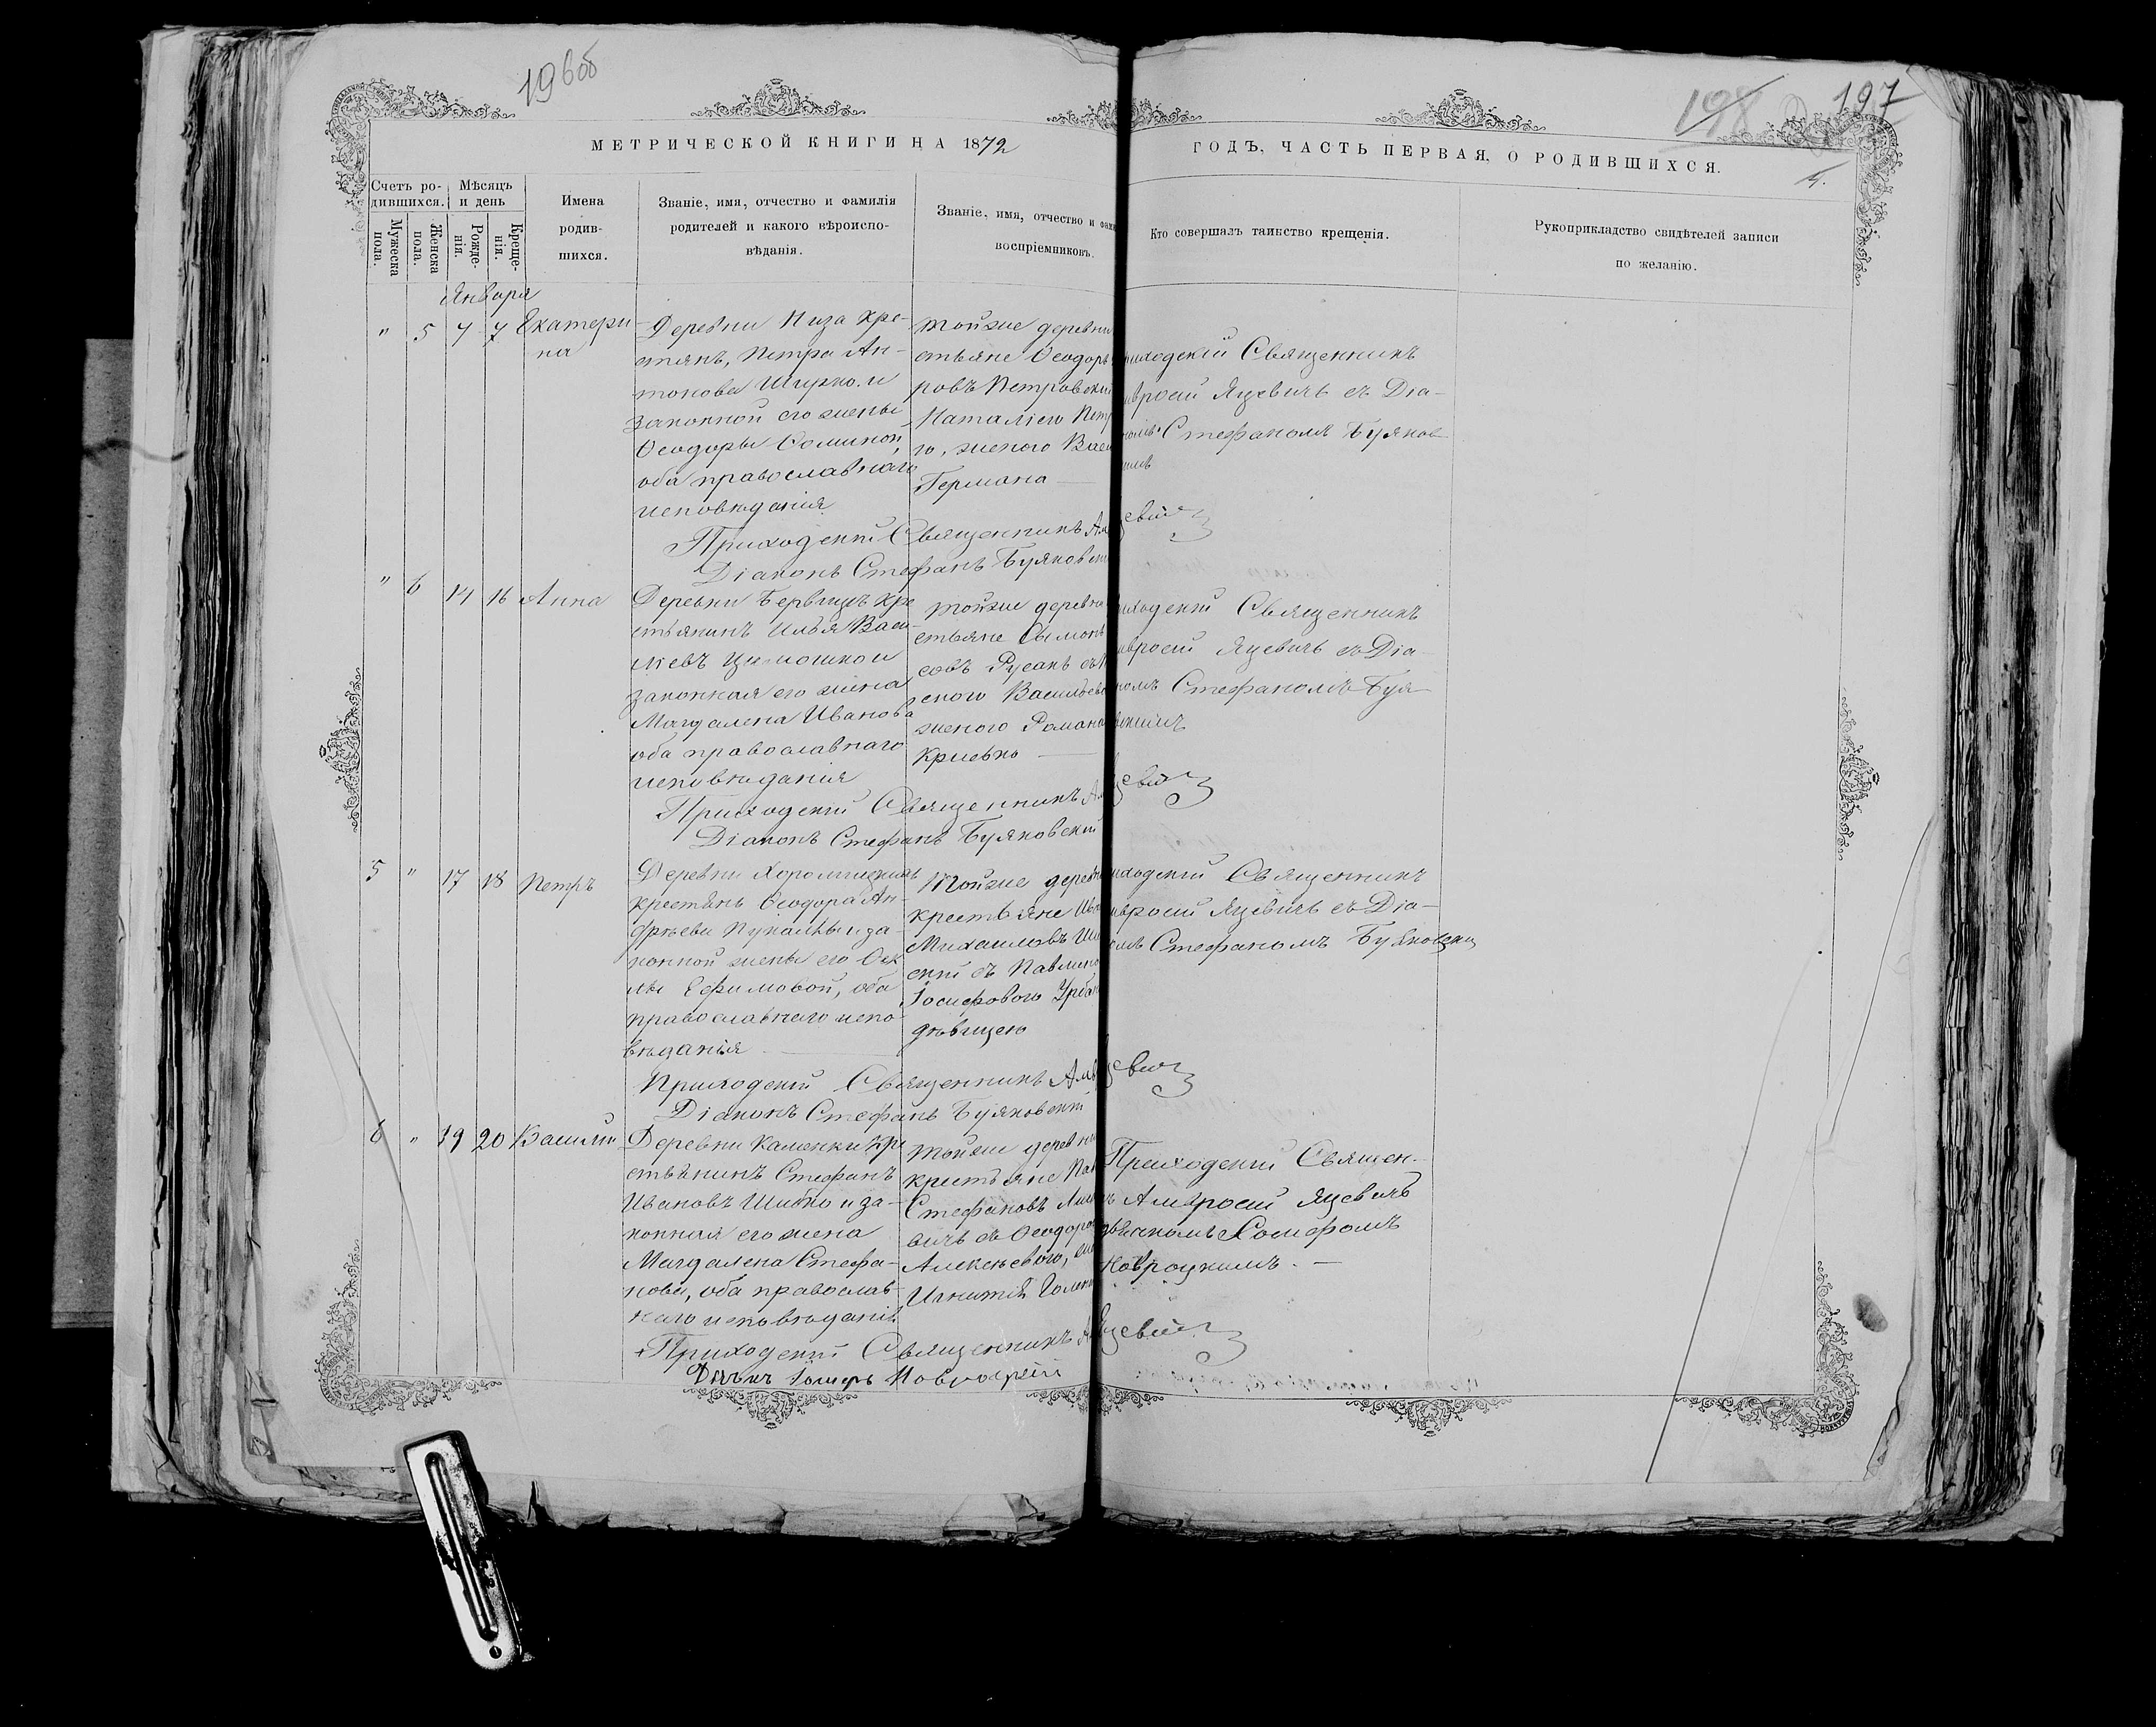 196об
198
197
МЕТРИЧЕСКОЙ КНИГИ НА 1872
ГОДЪ, ЧАСТЬ ПЕРВАЯ, О РОДИВШИХСЯ.
Счетъ ро-
дившихся.
Мужеска пола.
Женска пола.
Мѣсяцъ
и день
Рожде-
нія.
Креще-
нія.
Имена
родив-
шихся.
Званіе, имя, отчество и фамилія
родителей и какого вѣроиспо-
вѣданія.
Званіе, имя, отчество и фам
воспріемниковъ.
Кто совершалъ таинство крещенія.
Рукоприкладство свидѣтелей записи
по желанію.
Января
" 5 7 7 Екатери-
на
Деревни кре-
стянъ, Петра Ан-
тонова и
законной его жены
Ѳеодоры
оба православнаго
исповѣданія
тойже деревни
стьяне Ѳеодоръ
ровъ Петровскі
Наталіею Пет
ю, женою Васи
Германа
риходскій Священникъ
мвросій Яцевичъ съ Діа-
Стефаномъ Буянов
Приходскій Священникъ Ам
цевичъ
Діаконъ Стефанъ Буяновскі
" 6 14 16 Анна
Деревни кре
стьянинъ Илья Васи-
ліевъ и
законная его жена
Магдалена Иванова
оба православнаго
исповѣданія
тойже деревни
стьяне
совъ Русакъ съ
скою Васильево
женою Романа
риходскій Священникъ
мвросій Яцевичъ съ Діа-
номъ Стефаномъ Буя-
новскимъ
Приходскій Священникъ Ам
цевичъ
Діаконъ Стефанъ Буяновскій
5 " 17 18 Петръ
Деревни
крестянъ Ѳеодора Ан-
дреева и за-
конной жены его Ѳек
лы Ефимовой, оба
православнаго испо-
вѣданія
Тойже деревн
крестьяне Ива
Михаиловъ
скій съ Павлино
Іосифовою Урба
дѣвицею
риходскій Священникъ
мвросій Яцевичъ съ Діа-
омъ Стефаномъ Буяновски
Приходскій Священникъ Амв
цевичъ
Діаконъ Стефанъ Буяновскій
6 " 19 20 Василій
Деревни Каменки кре
стьянинъ Стефанъ
Ивановъ Шибко и за-
конная его жена
Магдалена Стефа-
нова, оба православ-
наго исповѣданія
тойже деревни
крестьяне Пав
Стефановъ
вичъ съ Ѳеодоро
Алексѣевою, же
Игнатія
Приходскій Священ-
ъ Амвросій Яцевичъ
дьячкомъ Іосифомъ
Новроцкимъ.
Приходскій Священникъ А
Яцевичъ
Дьячъ Іосифъ Новроцкій